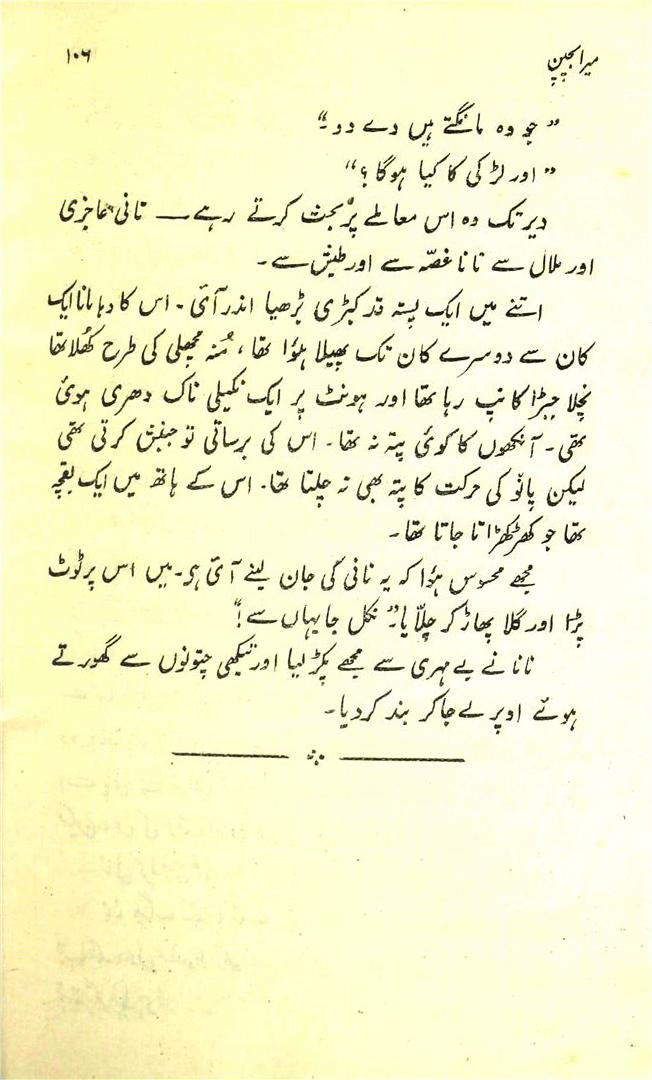 میرا بچپن ۱۰۶
” جو وہ مانگتے ہیں دے دو۔“
” اور لڑکی کا کیا ہوگا ؟“
دیر تک وہ اس معاملے پر بحث کرتے رہے — نانی عاجزی
اور ملال سے نانا غصّہ سے اور طیش سے۔
اتنے میں ایک پستہ قد کبڑی بڑھیا اندر آئی۔ اس کا دہانا ایک
کان سے دوسرے کان تک پھیلا ہؤا تھا، مُنہ مچھلی کی طرح کھُلا تھا
نچلا جبڑا کانپ رہا تھا اور ہونٹ پر ایک نکیلی ناک دھری ہوئی
تھی۔ آنکھوں کا کوئی پتہ نہ تھا۔ اس کی برساتی تو جنبش کرتی تھی
لیکن پانو کی حرکت کا پتہ بھی نہ چلتا تھا۔ اس کے ہاتھ میں ایک بقچہ
تھا جو کھڑکھڑاتا جاتا تھا۔
مجھے محسوس ہؤا کہ یہ نانی کی جان لینے آئی ہی۔ میں اس پر ٹوٹ
پڑا اور گلا پھاڑ کر چلّایا۔” نکل جا یہاں سے !“
نانا نے بے مہری سے مجھے پکڑ لیا اور تیکھی چتونوں سے گھورتے
ہوئے اوپر لے جا کر بند کر دیا۔